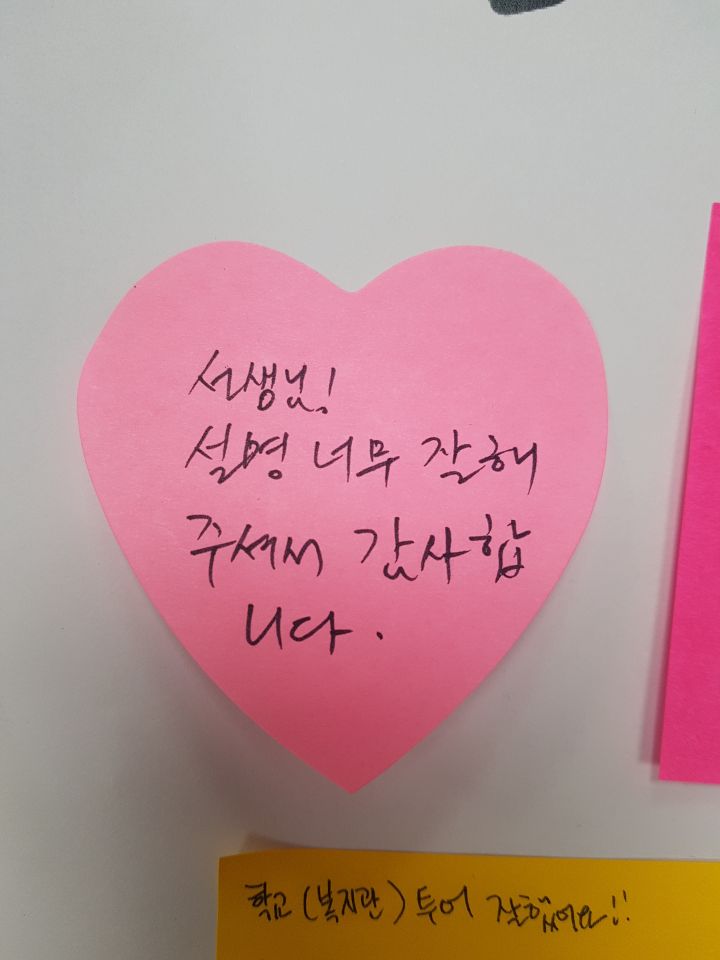 선생님!
설명 너무 잘해
주셔서 감사합
니다.
학교 (복지관) 투어 잘했어요!!